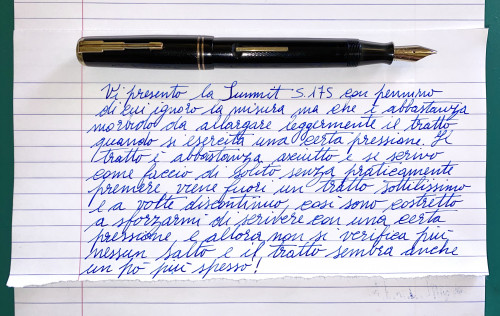 Vi presento la Summit S.175 con pennino
di cui ignoro la misura ma che è abbastanza
morbido da allargare leggermente il tratto
quando si esercita una certa pressione. Il
tratto è abbastanza asciutto e se scrivo
come faccio di solito senza praticamente
premere, viene fuori un tratto sottilissimo
e a volte discontinuo, così sono costretto
a sforzarmi di scrivere con una certa
pressione, e allora non si verifica più
nessun salto e il tratto sembra anche
un pò più spesso!